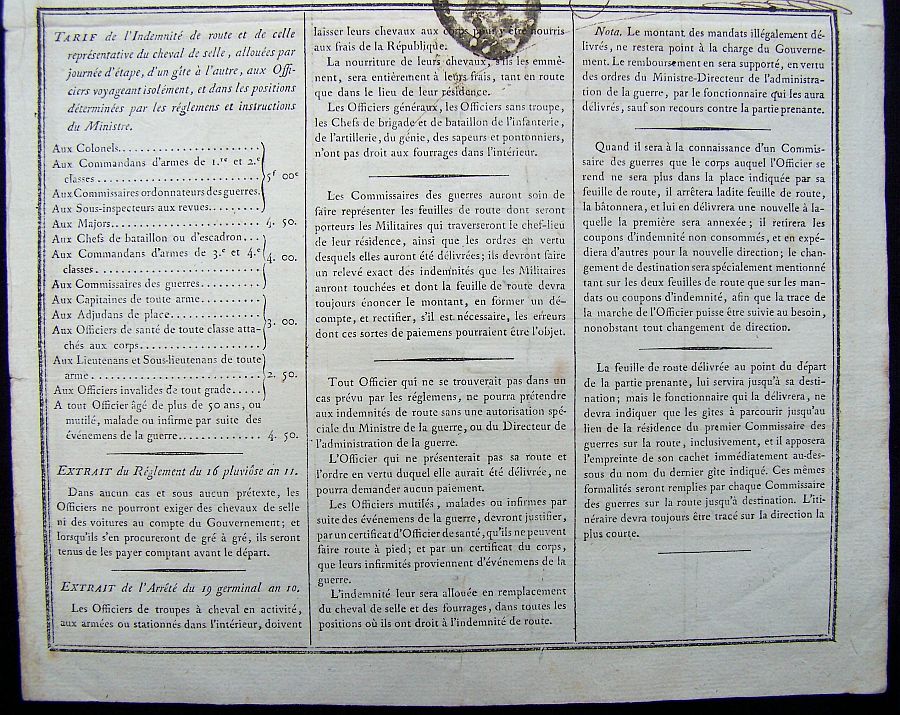 TARIF de l'Indemnité de route et de celle
représentative du cheval de selle, allouées par
journée d'étape, d'un gîte à l'autre, aux Offi-
ciers voyageant isolément, et dans les positions
déterminées par les réglemens et instructions
du Ministre.
Aux Colonels......................
Aux Commandans d'armes de 1.re et 2.e
classes......................... 5f 00c
Aux Commissaires ordonnateurs des guerres.
Aux Sous-inspecteurs aux revues.........
Aux Majors......................... 4. 50.
Aux Chefs de bataillon ou d'escadron...
Aux Commandans d'armes de 3.e et 4.e 4. 00.
classes.........................
Aux Commissaires des guerres..........
Aux Capitaines de toute arme..........
Aux Adjudans de place...............
Aux Officiers de santé de toute classe atta- 3. 00.
chés aux corps....................
Aux Lieutenans et Sous-lieutenans de toute
arme............................ 2. 50.
Aux Officiers invalides de tout grade.....
A tout Officier âgé de plus de 50 ans, ou
mutilé, malade ou infirme par suite des
événemens de la guerre.............. 4. 50.
EXTRAIT du Réglement du 16 pluviôse an 11.
Dans aucun cas et sous aucun prétexte, les
Officiers ne pourront exiger des chevaux de selle
ni des voitures au compte du Gouvernement; et
lorsqu'ils s'en procureront de gré à gré, ils seront
tenus de les payer comptant avant le départ.
EXTRAIT de l'Arrêté du 19 germinal an 10.
Les Officiers de troupes à cheval en activité,
aux armées ou stationnés dans l'intérieur, doivent
laisser leurs chevaux aux corps pour y être nourris
aux frais de la République.
La nourriture de leurs chevaux, s'ils les emmè-
nent, sera entièrement à leurs frais, tant en route
que dans le lieu de leur résidence.
Les Officiers généraux, les Officiers sans troupe,
les Chefs de brigade et de bataillon de l'infanterie,
de l'artillerie, du génie, des sapeurs et pontonniers,
n'ont pas droit aux fourrages dans l'intérieur.
Les Commissaires des guerres auront soin de
faire représenter les feuilles de route dont seront
porteurs les Militaires qui traverseront le chef-lieu
de leur résidence, ainsi que les ordres en vertu
desquels elles auront été délivrées; ils devront faire
un relevé exact des indemnités que les Militaires
auront touchées et dont la feuille de route devra
toujours énoncer le montant, en former un dé-
compte, et rectifier, s'il est nécessaire, les erreurs
dont ces sortes de paiemens pourraient être l'objet.
Tout Officier qui ne se trouverait pas dans un
cas prévu par les réglemens, ne pourra prétendre
aux indemnités de route sans une autorisation spé-
ciale du Ministre de la guerre, ou du Directeur de
l'administration de la guerre.
L'Officier qui ne présenterait pas sa route et
l'ordre en vertu duquel elle aurait été délivrée, ne
pourra demander aucun paiement.
Les Officiers mutilés, malades ou infirmes par
suite des événemens de la guerre, devront justifier,
par un certificat d'Officier de santé, qu'ils ne peuvent
faire route à pied; et par un certificat du corps,
que leurs infirmités proviennent d'événemens de la
guerre.
L'indemnité leur sera allouée en remplacement
du cheval de selle et des fourrages, dans toutes les
positions où ils ont droit à l'indemnité de route.
Nota. Le montant des mandats illégalement dé-
livrés, ne restera point à la charge du Gouverne-
ment. Le remboursement en sera supporté, en vertu
des ordres du Ministre-Directeur de l'administra-
tion de la guerre, par le fonctionnaire qui les aura
délivrés, sauf son recours contre la partie prenante.
Quand il sera à la connaissance d'un Commis-
saire des guerres que le corps auquel l'Officier se
rend ne sera plus dans la place indiquée par sa
feuille de route, il arrêtera ladite feuille de route,
la bâtonnera, et lui en délivrera une nouvelle à la-
quelle la première sera annexée; il retirera les
coupons d'indemnité non consommés, et en expé-
diera d'autres pour la nouvelle direction; le chan-
gement de destination sera spécialement mentionné
tant sur les deux feuilles de route que sur les man-
dats ou coupons d'indemnité, afin que la trace de
la marche de l'Officier puisse être suivie au besoin,
nonobstant tout changement de direction.
La feuille de route délivrée au point du départ
de la partie prenante, lui servira jusqu'à sa desti-
nation; mais le fonctionnaire qui la délivrera, ne
devra indiquer que les gîtes à parcourir jusqu'au
lieu de la résidence du premier Commissaire des
guerres sur la route, inclusivement, et il apposera
l'empreinte de son cachet immédiatement au-des-
sous du nom du dernier gîte indiqué. Ces mêmes
formalités seront remplies par chaque Commissaire
des guerres sur la route jusqu'à destination. L'iti-
néraire devra toujours être tracé sur la direction la
plus courte.